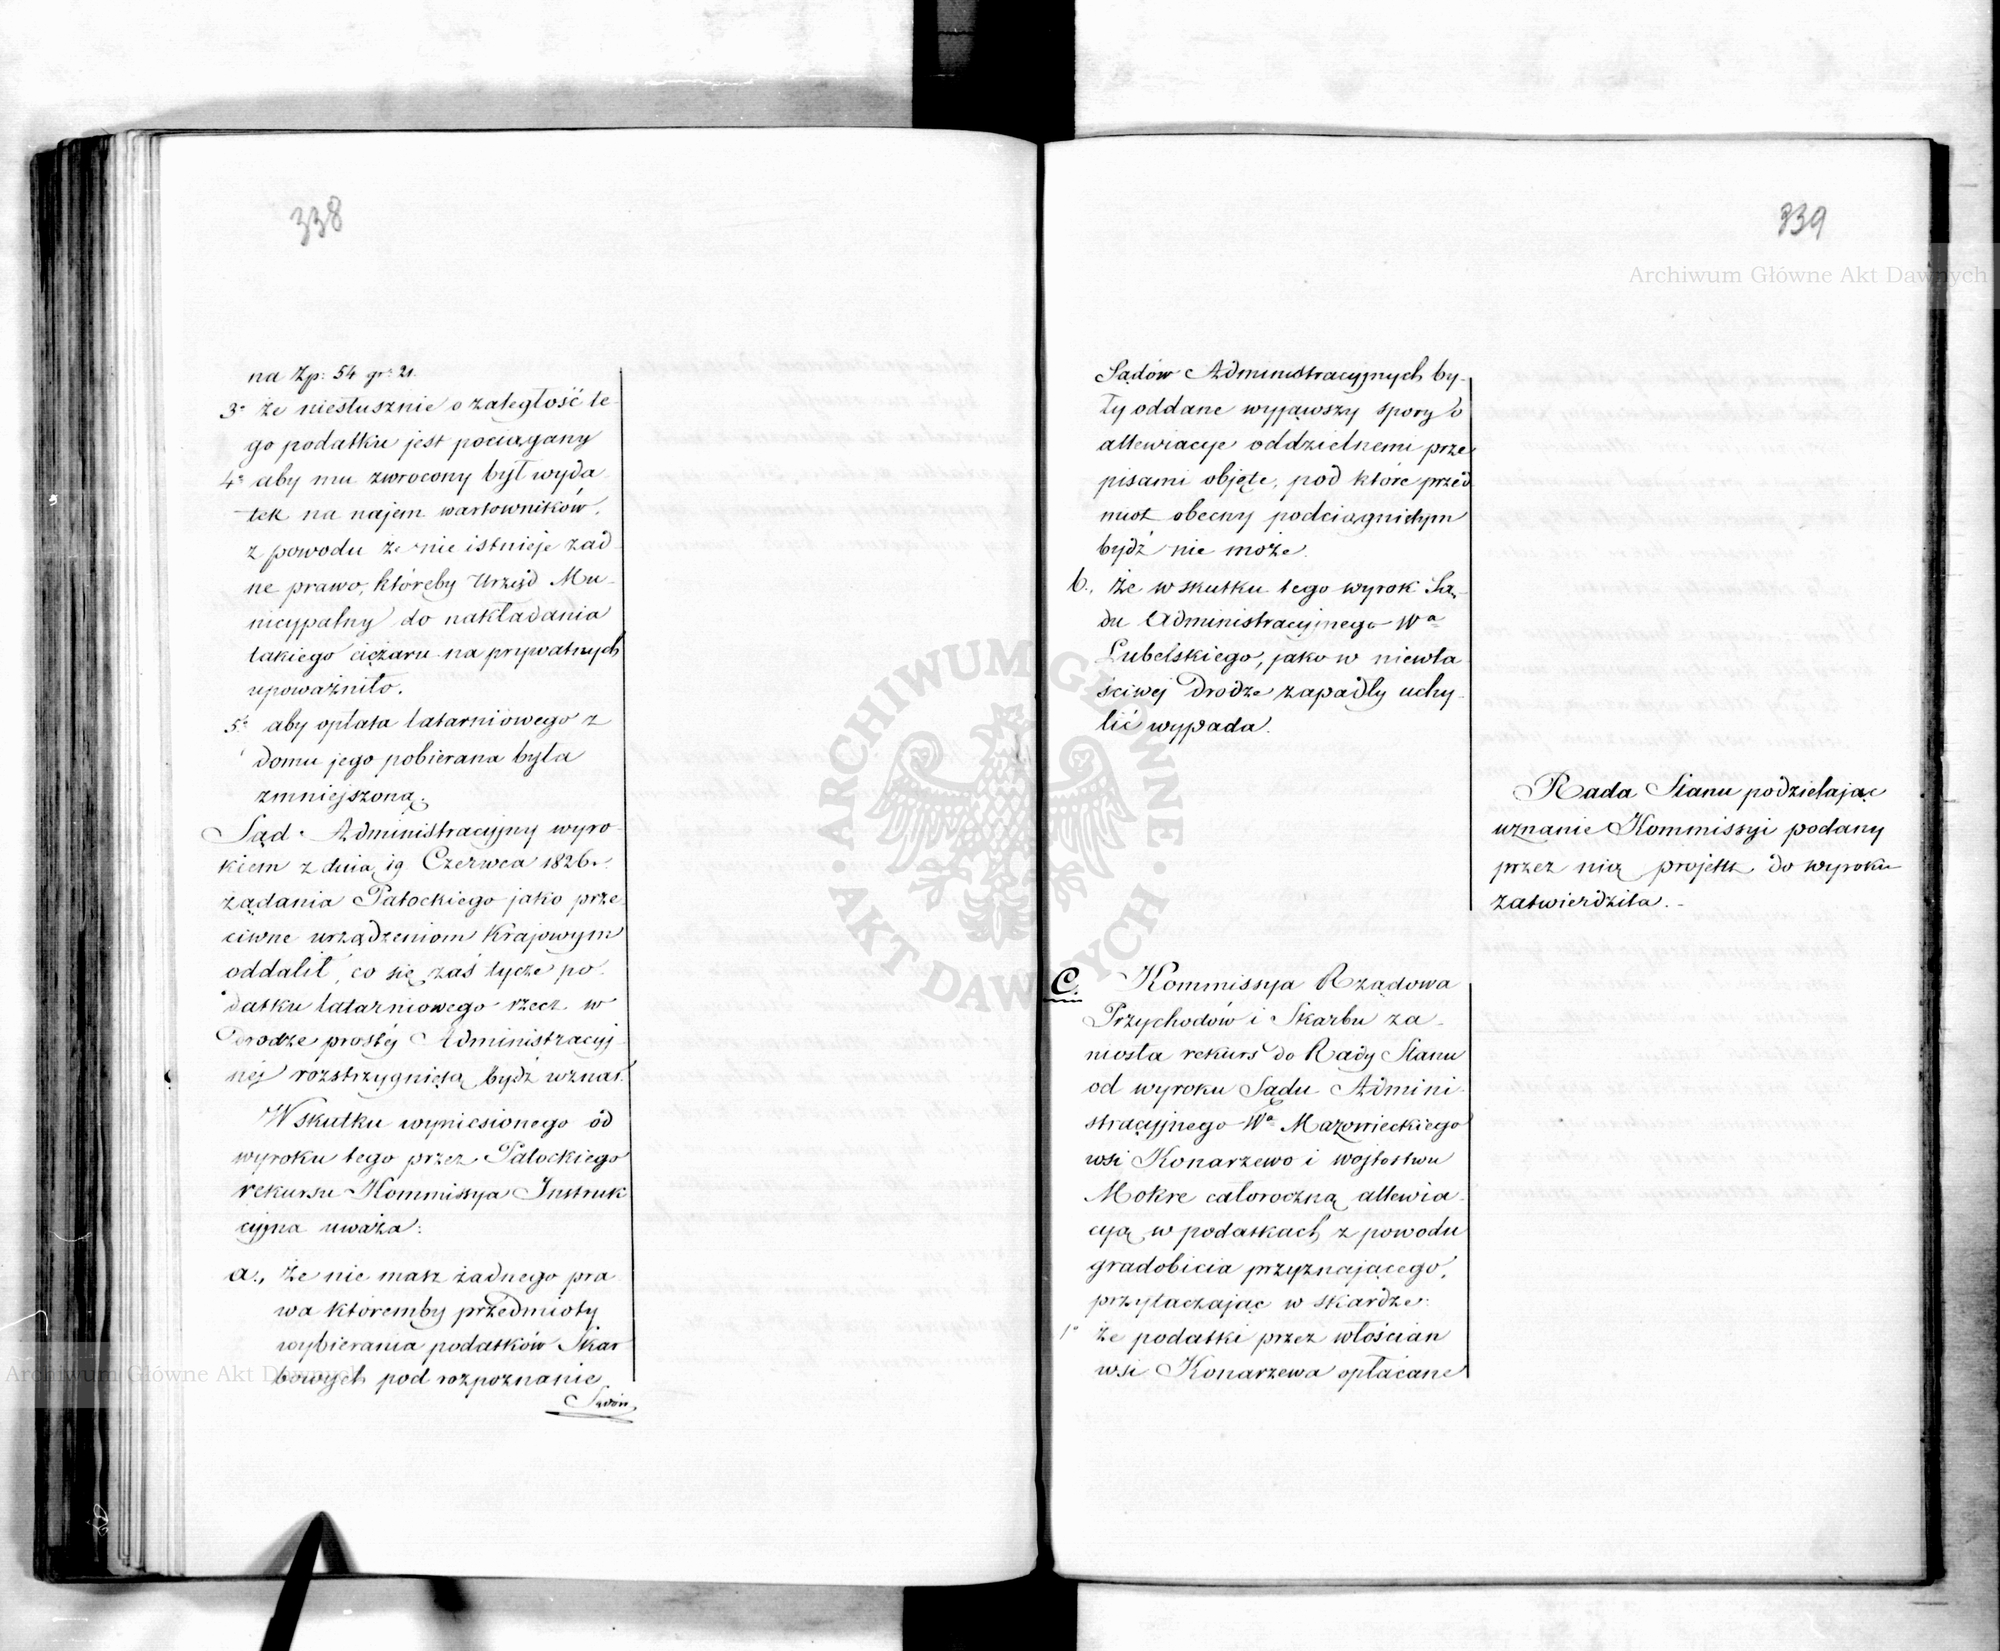 338
na Zp: 54 gr: 21.
3° że niesłusznie o zaległość te-
go podatku jest pociągany
4° aby mu zwrocony był wyda
tek na najem wartowników.
z powodu że nie istnieje żad-
ne prawo, któreby Urząd Mu-
nicypalny do nakładania
takiego ciężaru na prywatnych
upoważniło.
5° aby opłata latarniowego z
domu jego pobierana była
zmniejszoną.
Sąd Administracyjny wyro-
kiem z dnia 19 Czerwca 1826 r.
żądania Patockiego jako prze
ciwne urządzeniom Krajowym
oddalił, co się zaś tycze po-
datku latarniowego rzecz w
drodze prostéj Administracyj
nej rozstrzygniętą bydź uznał.
W skutku wyniesionego od
wyroku tego przez Patockiego
rekursu Kommissya Instruk
cyjna uważa:
a., że nie masz żadnego pra
wa któremby przedmioty
wybierania podatków Skar
bowych pod rozpoznanie
Sądów
339
Archiwum Główne Akt Dawnych
Sądów Administracyjnych by-
ły oddane wyjąwszy spory o
allewiacye oddzielnemi prze
pisami objęte, pod które przed
miot obecny podciągniętym
bydź nie może.
b., że w skutku tego wyrok Są-
du Administracyjnego Wa
Lubelskiego, jako w niewła
ściwej drodze zapadły uchy-
lić wypada.
Rada Stanu podzielając
uznanie Kommissyi podany
przez nią projekt do wyroku
zatwierdziła.-
C. Kommissya Rządowa
Przychodów i Skarbu za-
niosła rekurs do Rady Stanu
od wyroku Sądu Admini-
stracyjnego Wa Mazowieckiego
wsi Konarzewo i wojtostwu
Mokre całoroczną allewia-
cyą w podatkach z powodu
gradobicia przyznającego,
przytaczając w skardze:
1° że podatki przez włościan
wsi Konarzewa opłacane
ARCHIWUM GŁÓWNE · AKT DAWNYCH ·
Archiwum Główne Akt Dawnych